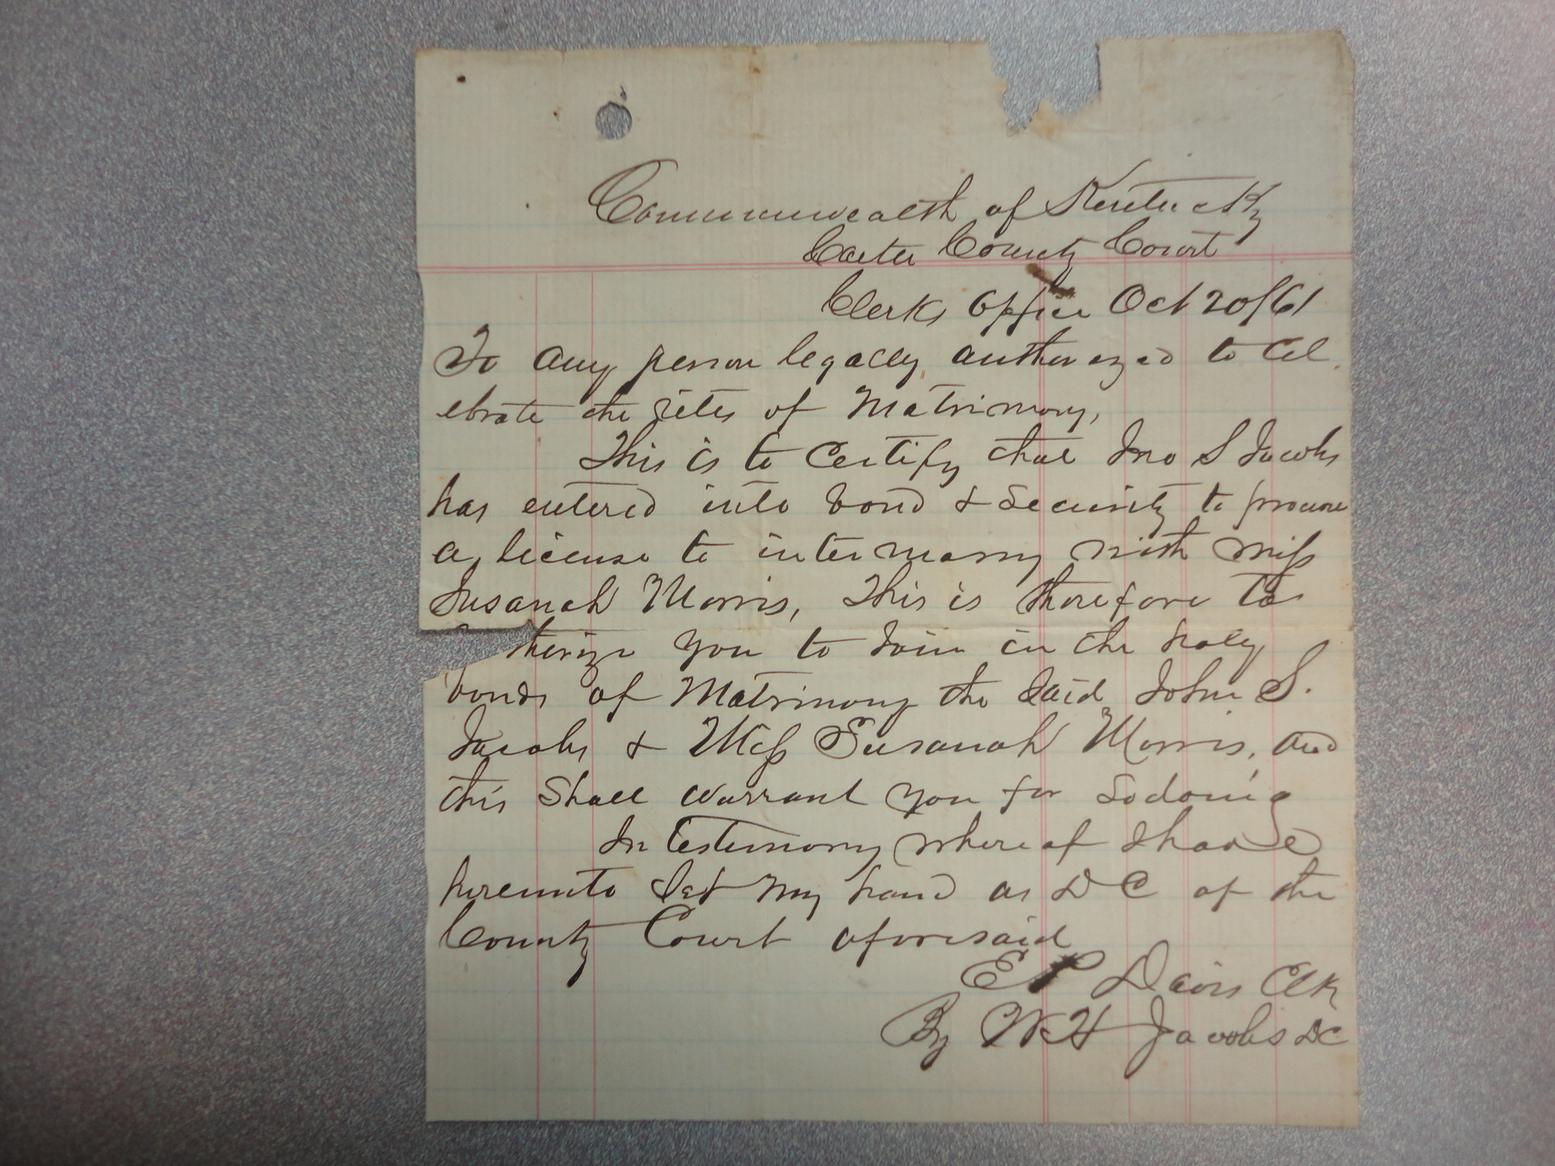 Commonwealth of Kentucky
Carter County Court
Clerks Office Oct 20/61
To any person legally authorized to Cel
ebrate the rites of Matrimony,
This is to Certify that Jno S Jacobs
has entered into bond & Security to procure
a license to intermarry with Miss
Susanah Morris, This is therefore to
thorize you to Join in the holy
bonds of Matrimony the Said John S.
Jacobs & Miss Susanah Morris, and
this Shall warrant you for so doing
In testimony where of I have
hereunto Set my hand as D C of the
County Court aforesaid
E P Davis Clk
By W H Jacobs DC